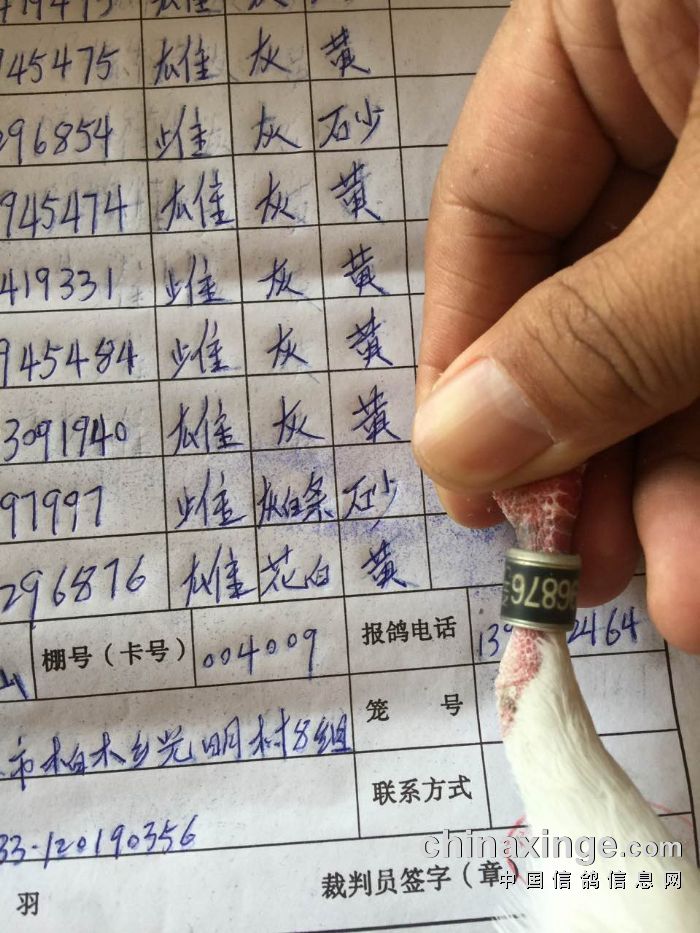 945475 雄 灰 黄
296854 雌 灰 石少
945474 雄 灰 黄
419331 雌 灰 黄
945484 雌 灰 黄
3091940 雄 灰 黄
97997 雌 灰白条 石少
296876 雄 花白 黄
棚号（卡号） 004009 报鸽电话 2464
笼 号
市柏木乡光明村8组
联系方式
33-120190356
羽 裁判员签字（章）
96876
chinaxinge.com
中国信鸽信息网